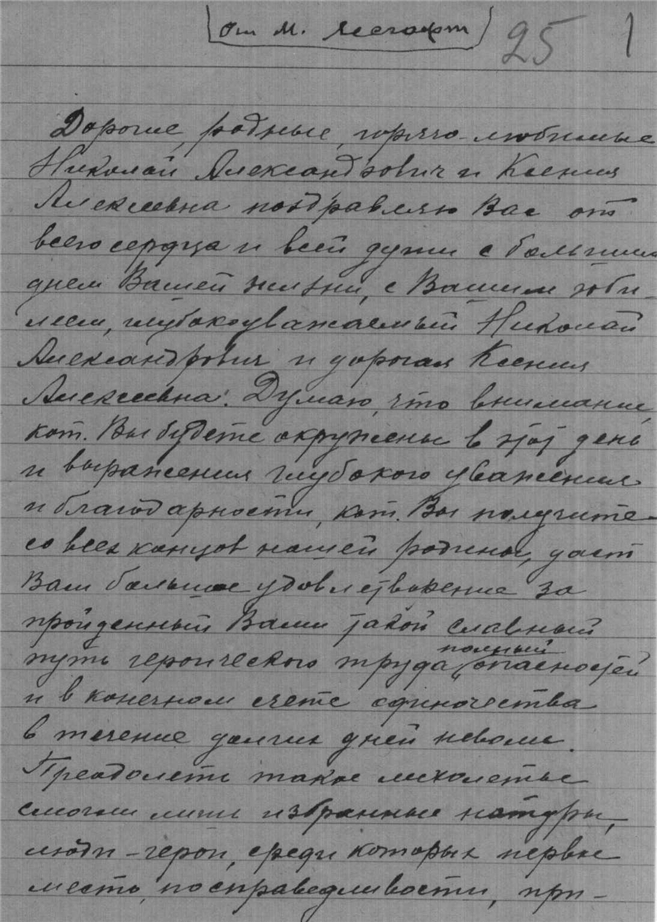 от М. Лесгафт
25 1
Дорогие, родные, горячо-любимые
Николай Александрович и Ксения
Алексеевна поздравляю Вас от
всего сердца и всей души с большим
днем Вашей жизни, с Вашим юби-
леем, глубокоуважаемый Николай
Александрович и дорогая Ксения
Алексеевна. Думаю, что внимание,
кот. Вы будете окружены в этот день
и выражения глубокого уважения
и благодарности, кот. Вы получите
со всех концов нашей родины, даст
Вам большое удовлетворение за
пройденный Вами такой славный
путь героического труда, полный опасностей
и в конечном счете одиночества
в течение долгих дней неволи.
Преодолеть такое лихолетье
смогли лишь избранные натуры,
люди-герои, среди которых первое
место, по справедливости, при-